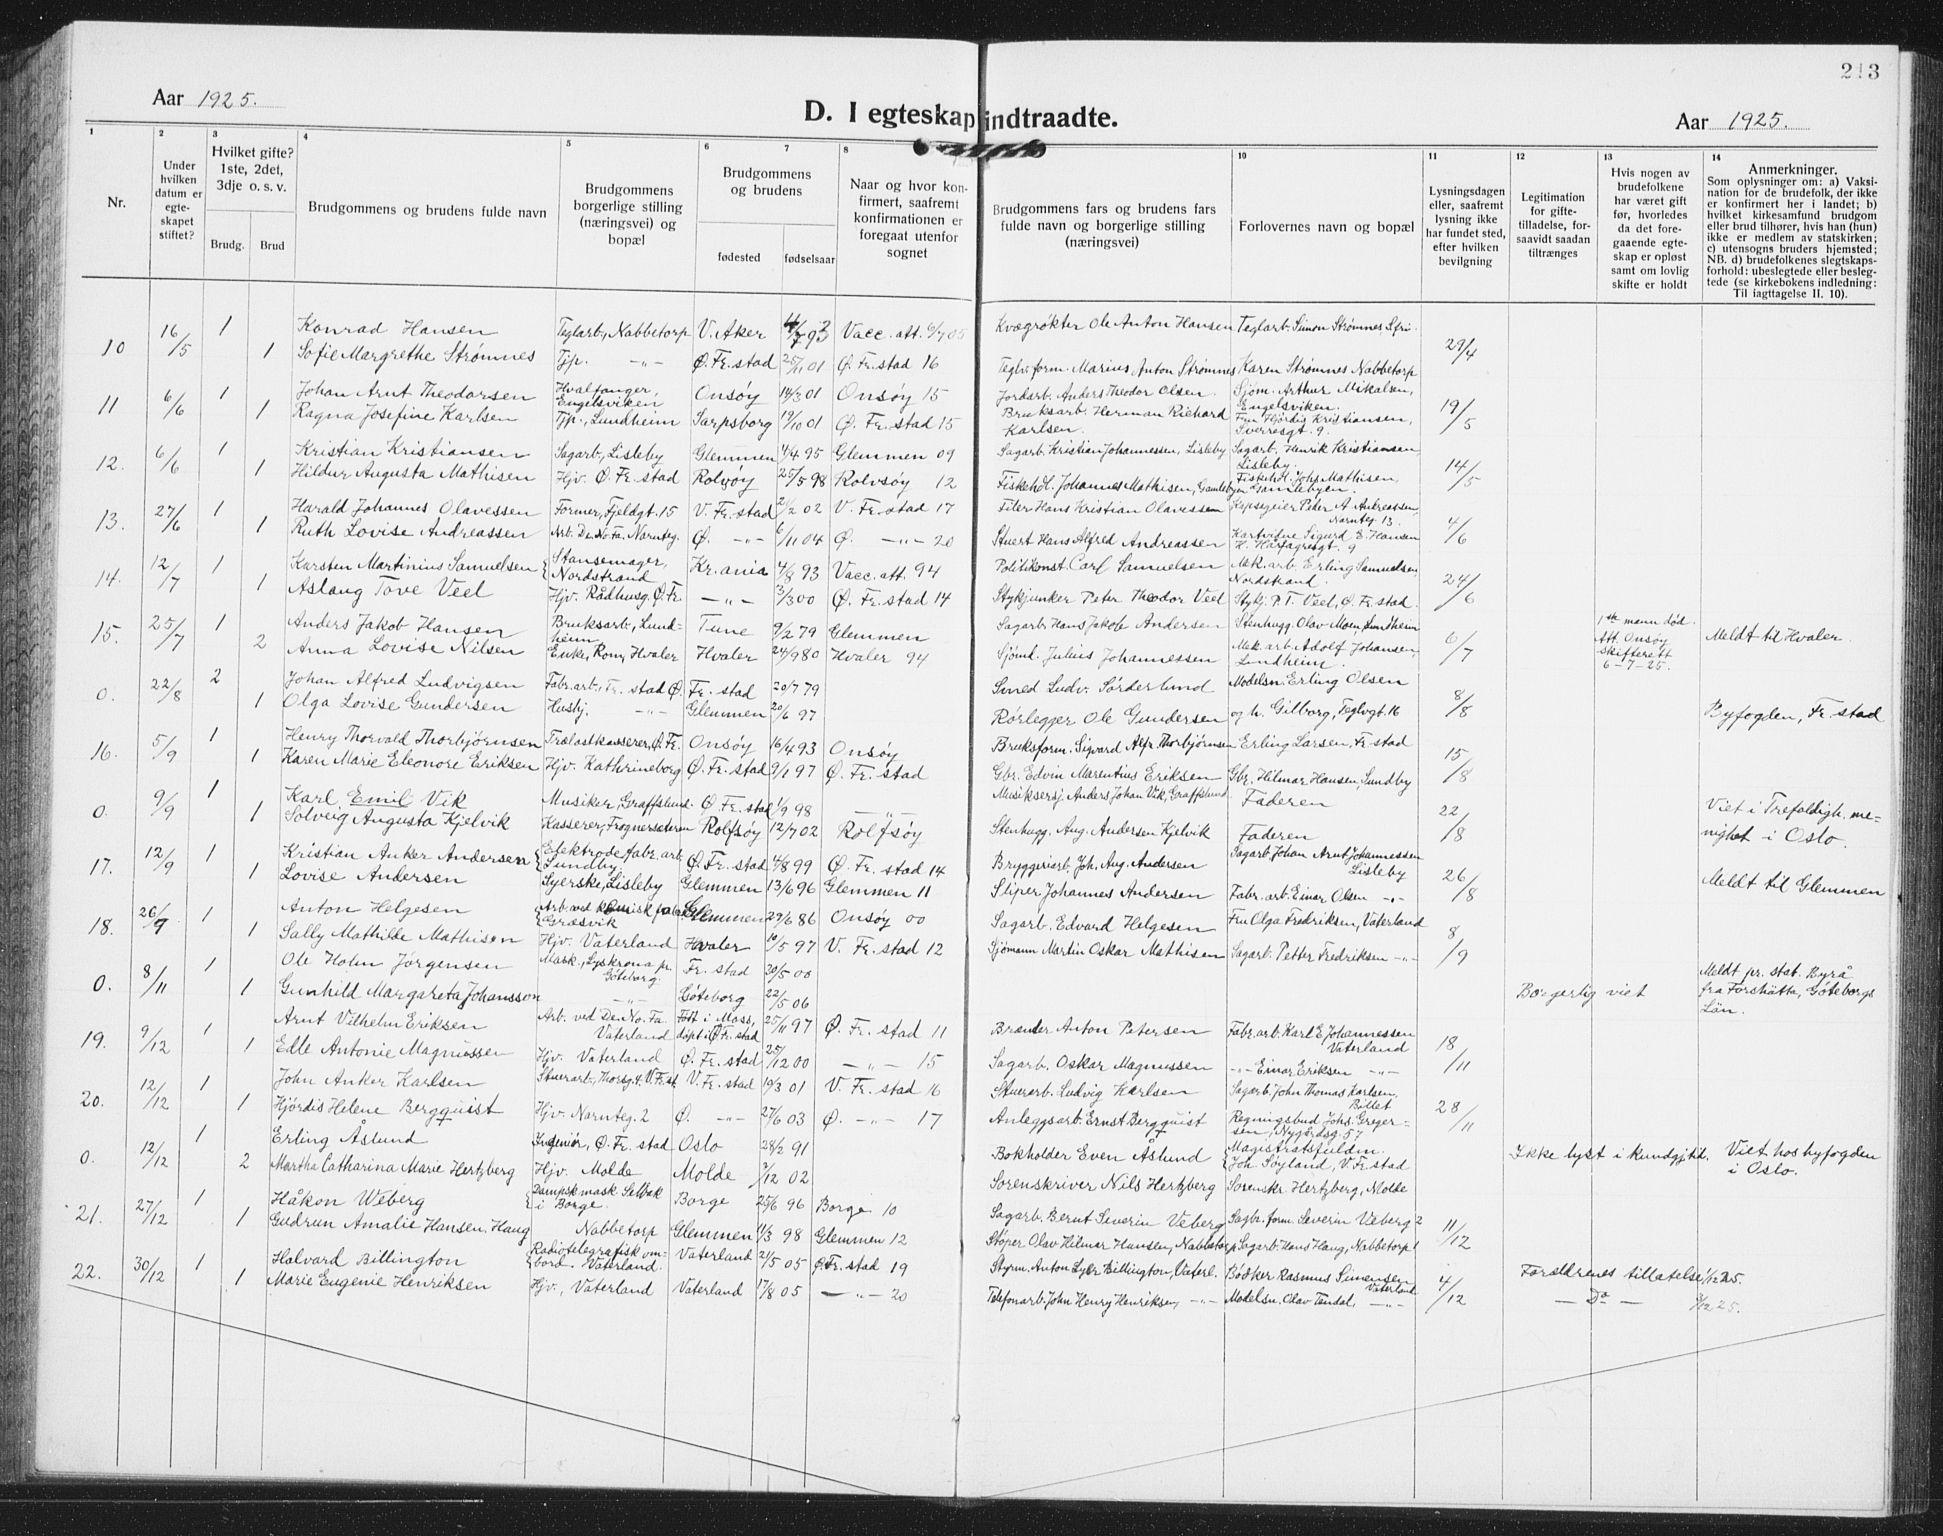 213
Aar 1925.
D. I egteskap indtraadte.
Aar 1925.
1 2 3 4 5 6 7 8 10 11 12 13 14
Nr.
Under hvilken datum er egteskapet stiftet?
Hvilket gifte? 1ste, 2det, 3dje o. s. v.
Brudg. Brud
Brudgommens og brudens fulde navn
Brudgommens borgerlige stilling (næringsvei) og bopæl
Brudgommens og brudens
fødested fødselsaar
Naar og hvor konfirmert, saafremt konfirmationen er foregaat utenfor sognet
Brudgommens fars og brudens fars fulde navn og borgerlige stilling (næringsvei)
Forlovernes navn og bopæl
Lysningsdagen eller, saafremt lysning ikke har fundet sted, efter hvilken bevilgning
Legitimation for giftetilladelse, forsaavidt saadan tiltrænges
Hvis nogen av brudefolkene har været gift før, hvorledes da det foregaaende egteskap er opløst samt om lovlig skifte er holdt
Anmerkninger.
Som oplysninger om: a) Vaksination for de brudefolk, der ikke er konfirmert her i landet; b) hvilket kirkesamfund brudgom eller brud tilhører, hvis han (hun) ikke er medlem av statskirken; c) utensogns bruders hjemsted; NB. d) brudefolkenes slegtskapsforhold: ubeslegtede eller beslegtede (se kirkebokens indledning: Til iagttagelse II. 10).
10 16/5 1 Konrad Hansen Teglarb., Nabbetorp V. Aker 93 Vacc. att. 6/7 05 Kvægrøkter Ole Anton Hansen Teglarb. Simon Strømnes 29/4
1 Sofie Margrethe Strømnes Tjp. -"- Ø. Fr. stad 25/11 01 Ø. Fr. stad 16 Teglv. form. Marius Anton Strømnes Karen Strømnes Nabbetorp
11 6/6 1 Johan Arnt Theodorsen Hvalfanger, Engelsviken Onsøy 14/3 01 Onsøy 15 Jordarb. Anders Theodor Olsen. Sjøm. Arthur Mikalsen, Engelsviken. 19/5
1 Ragna Josefine Karlsen Tjp., Lundheim Sarpsborg 19/10 01 Ø. Fr. stad 15 Bruksarb. Herman Richard Karlsen. Fru Hjördis Kristiansen, Sverresgt. 9.
12. 6/6 1 Kristian Kristiansen Sagarb., Lisleby Glemmen 1/4 95 Glemmen 09 Sagarb. Kristian Johannessen, Lisleby Sagarb. Henrik Kristiansen, Lisleby. 14/5
1 Hildur Augusta Mathisen Hjv. Ø. Fr. stad Rolvsöy 25/5 98 Rolvsöy 12 Fiskeh. Johannes Mathisen, Gamlebyen Fiskeh. Johs Mathisen, Gamlebyen.
13. 27/6 1 Harald Johannes Olavessen Former, Fjeldgt. 15 V. Fr. stad 2/2 02 V. Fr. stad 17 Filer Hans Kristian Olavessen Peter A. Andreassen, Narnteg. 13. 4/6
1 Ruth Lovise Andreassen Arb. De. No. Fa. Narnteg. Ø. -"- 6/11 04 Ø. -"- 20 Stuert Hans Alfred Andreassen Sigurd E. Hansen H. Hårfagresgt. 9
14. 12/7 1 Karsten Martinius Samuelsen Stansemager, Nordstrand Kr. ania 4/8 93 Vacc. att. 94 Politikonst. Carl Samuelsen Mek. arb. Erling Samuelsen, Nordstrand. 24/6
1 Aslaug Tove Veel Hjv. Rådhusg. Ø. Fr. -"- 3/3 00 Ø. Fr. stad 14 Stykjunker Peter Theodor Veel Stykj. P. T. Veel, Ø. Fr. stad.
15. 25/7 1 Anders Jakob Hansen Bruksarb., Lundheim Tune 9/2 79 Glemmen Sagarb. Hans Jakob Andersen Stenhugg. Olav Moen, Lundheim 6/7 1ste mann död. Att. Onsøy skifterett 6-7-25. Meldt til Hvaler.
2 Anna Lovise Nilsen Enke, Rom, Hvaler Hvaler 24/9 80 Hvaler 94 Sjömd. Julius Johannessen Mek. arb. Adolf Johansen, Lundheim.
0. 22/8 2 Johan Alfred Ludvigsen Fabr. arb., Fr. stad Ø. Fr. stad 20/7 79 Smed Ludv. Sörderlund Modelsn. Erling Olsen 8/8 Byfogden, Fr. stad
1 Olga Lovise Gundersen Husbj. -"- Glemmen 20/6 97 Rørlegger Ole Gundersen og h. Gilborg, Teglvgt. 16
16. 5/9 1 Henry Thorvald Thorbjörnsen Trælastkasserer, Ø. Fr. Onsøy 16/4 93 Onsøy Bruksform. Sigvard Alfr. Thorbjörnsen Erling Larsen, Fr. stad 15/8
1 Karen Marie Eleonore Eriksen Hjv. Kathrineborg Ø. Fr. stad 9/1 97 Ø. Fr. stad Gbr. Edvin Marentius Eriksen Gbr. Hilmar Hansen, Lundby
0. 9/9 1 Karl Emil Vik Musiker, Graffslund. Ø. Fr. stad 1/9 98 -"- Musiksersj. Anders Johan Vik, Graffslund Faderen 22/8 Viet i Trefoldigh. menighet i Oslo.
1 Solveig Augusta Kjelvik Kasserer, Frognersæteren Rolfsøy 12/7 02 Rolfsøy Stenhugg. Aug. Andersen Kjelvik Faderen
17. 12/9 1 Kristian Anker Andersen Elektrodefabr. arb. Lundby Ø. Fr. stad 4/8 99 Ø. Fr. stad 14 Bryggeriarb. Joh. Aug. Andersen Sagarb. Johan Arnt Johannessen Lisleby 26/8 Meldt til Glemmen
1 Lovise Andersen Syerske, Lisleby Glemmen 13/6 96 Glemmen 11 Sliper Johannes Andersen Fabr. arb. Einar Olsen -"-
18. 26/9 1 Anton Helgesen Arb. ved kemisk fabr. Græsvik Glemmen 29/6 86 Onsøy 00 Sagarb. Edvard Helgesen Fru Olga Fredriksen, Vaterland 8/9
1 Sally Mathilde Mathisen Hjv. Vaterland Hvaler 10/5 97 V. Fr. stad 12 Sjömann Martin Oskar Mathisen Sagarb. Petter Fredriksen -"-
0. 8/11 1 Ole Holm Jørgensen Mask., Lyskrona pr. Göteborg. Fr. stad 30/5 00 Borgerlig viet Meldt pr. stat. Byrå fra Forshätta, Göteborgs Län.
1 Gunhild Margareta Johansson -"- Göteborg 22/5 06
19. 9/12 1 Arnt Vilhelm Eriksen Arb. ved De. No. Fa. Vaterland Född i Moss, döpt i Ø. Fr. stad 25/11 97 Ø. Fr. stad 11 Brænder Anton Petersen Fabr. arb. Karl E. Johannessen Vaterland 18/11
1 Edle Antonie Magnussen Hjv. Vaterland Ø. Fr. stad 25/12 00 -"- 15 Sagarb. Oskar Magnussen -"- Einar Eriksen -"-
20. 12/12 1 John Anker Karlsen Stuerarb., Thorsg. 4. V. Fr. st. V. Fr. stad 19/3 01 V. Fr. stad 16 Stuerarb. Ludvig Karlsen Sagarb. John Thomas Karlsen, Billet 28/11
1 Hjördis Helene Bergquist Hjv. Narnteg. 2 Ø. -"- 27/6 03 Ø. -"- 17 Anleggsarb. Ernst Bergquist Regningsbud Johs. Gregersen, Nygårdsg. 57
0. 12/12 1 Erling Åslund Ingeniör, Ø. Fr. stad Oslo 28/2 91 Bokholder Even Åslund Magistratsfuldm. Joh. Söyland, V. Fr. stad Ikke lyst i kundgj. tid. Viet hos byfogden i Oslo.
2 Martha Catharina Marie Hertzberg Hjv. Molde Molde 2/12 02 Sorenskriver Nils Hertzberg Sorenskr. Hertzberg, Molde
21. 27/12 1 Håkon Weberg Dampsk. mask. Selbak i Borge. Borge 25/6 96 Borge 10 Sagarb. Bernt Severin Veberg Sagbr. form. Severin Veberg 2 11/12
1 Gudrun Amalie Hansen, Haug Nabbetorp Glemmen 11/3 98 Glemmen 12 Støper Olav Hilmar Hansen, Nabbetorp Sagarb. Hans Haug, Nabbetorp 1
22. 30/12 1 Halvard Billington Radiotelegrafisk ombord. Vaterland. Vaterland 21/5 05 Ø. Fr. stad 19 Styrm. Anton Billington, Vaterl. Bödker Rasmus Simensen Vaterland 4/12 Forældrenes tillatelse 1/12 25.
1 Marie Eugenie Henriksen Hjv., Vaterland Vaterland 17/8 05 -"- 20 Telefonarb. John Henry Henriksen, -"- Modelsn. Olav Tendal, -"- - Do - 3/12 25.